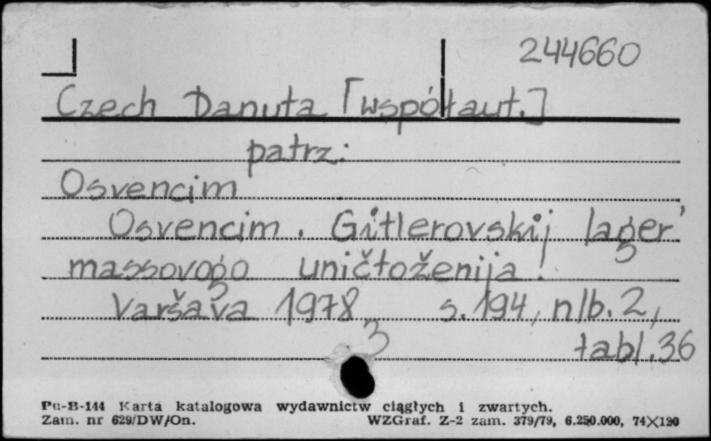 244660
Czech Danuta [współaut.]
patrz:
Osvencim
Osvencim. Gitlerovskij lager'
massovogo uničtoženija.
Varšava 1978, s. 194, nlb. 2,
tabl. 36
Pu-B-144 Karta katalogowa wydawnictw ciągłych i zwartych.
Zam. nr 629/DW/On. WZGraf. Z-2 zam. 379/79, 6.250.000, 74×120